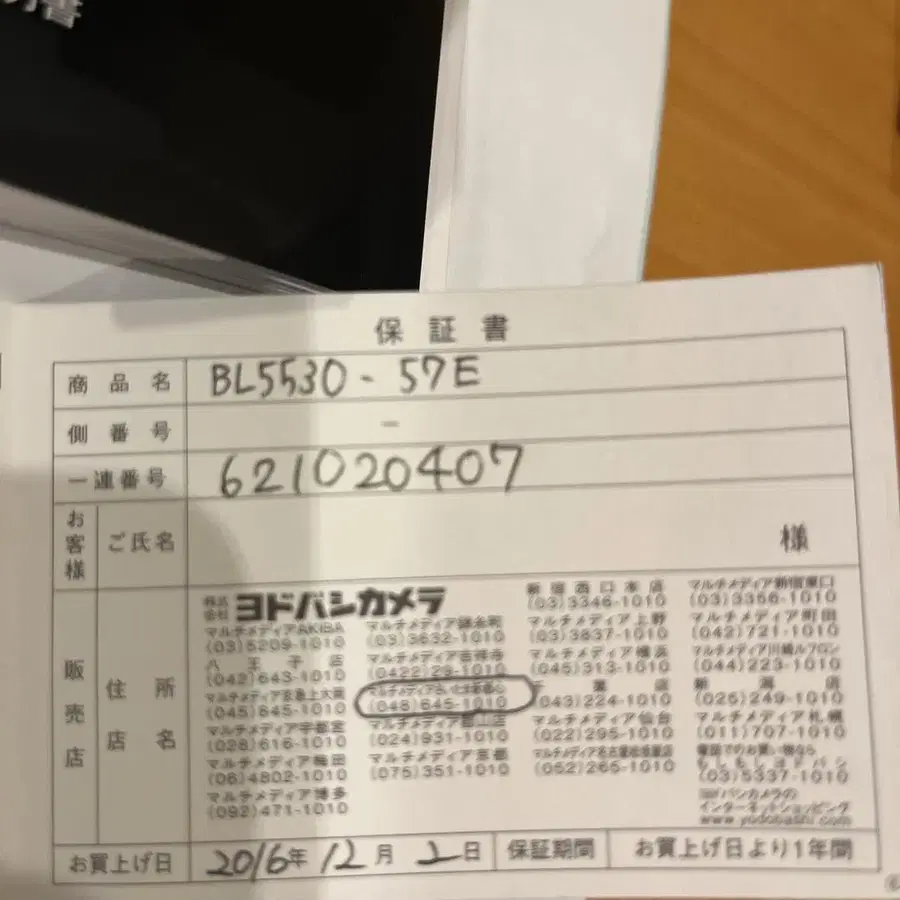 明書
保証書
商品名 BL5530-57E
側番号 -
一連番号 621020407
お客様 ご氏名 様
販売店 住所 店名
株式会社 ヨドバシカメラ
マルチメディアAKIBA
(03)5209-1010
八王子店
(042)643-1010
マルチメディア京急上大岡
(045)845-1010
マルチメディア宇都宮
(028)616-1010
マルチメディア梅田
(06)4802-1010
マルチメディア博多
(092)471-1010
マルチメディア錦糸町
(03)3632-1010
マルチメディア吉祥寺
(0422)29-1010
マルチメディアさいたま新都心
(048)645-1010
マルチメディア郡山店
(024)931-1010
マルチメディア京都
(075)351-1010
新宿西口本店
(03)3346-1010
マルチメディア上野
(03)3837-1010
マルチメディア横浜
(045)313-1010
千葉店
(043)224-1010
マルチメディア仙台
(022)295-1010
マルチメディア名古屋松坂屋店
(052)265-1010
マルチメディア新宿東口
(03)3356-1010
マルチメディア町田
(042)721-1010
マルチメディア川崎ルフロン
(044)223-1010
新潟店
(025)249-1010
マルチメディア札幌
(011)707-1010
電話でのお買い物なら
もしもしヨドバシ
(03)5337-1010
ヨドバシカメラの
インターネットショッピング
www.yodobashi.com
お買上げ日 2016年 12月 2日 保証期間 お買上げ日より1年間